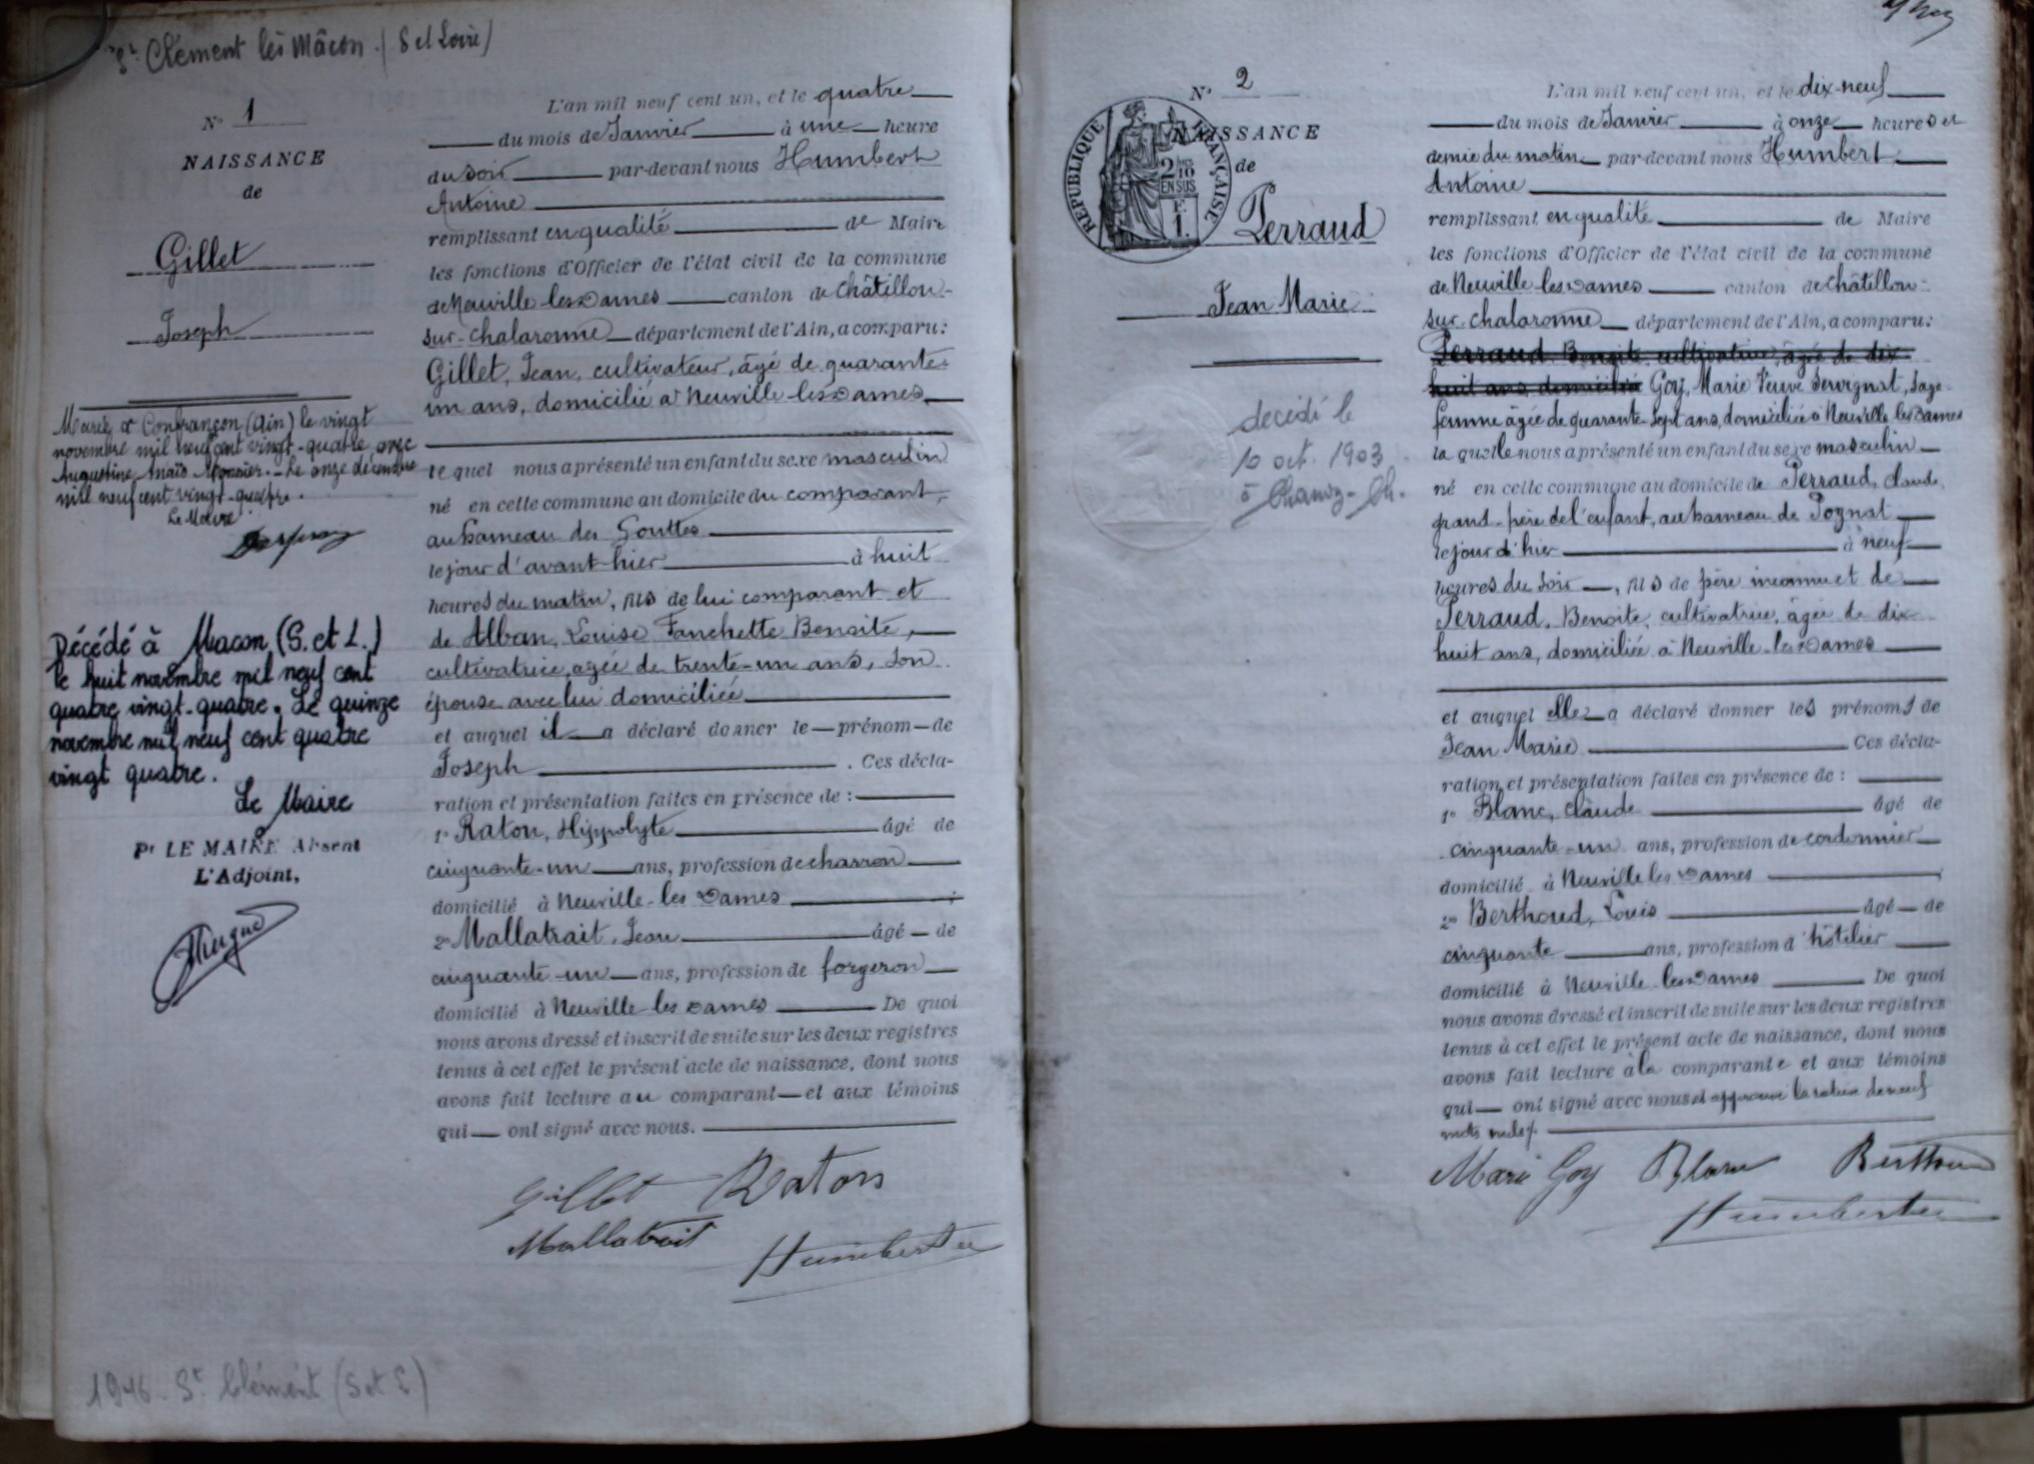 St Clément les Mâcon (S et Loire)
N° 1
NAISSANCE
de
Gillet
Joseph
Marié à Confrançon (Ain) le vingt
novembre mil neuf cent vingt-quatre avec
Augustine Anaïs Monnier. Le onze décembre
mil neuf cent vingt-quatre.
Le Maire
Décédé à Macon (S. et L.)
le huit novembre mil neuf cent
quatre vingt-quatre. Le quinze
novembre mil neuf cent quatre
vingt quatre.
Le Maire
Pr LE MAIRE Absent
L'Adjoint,
1946 - St Clément (S et L)
L'an mil neuf cent un, et le quatre
du mois de Janvier à une heure
du soir par-devant nous Humbert
Antoine
remplissant en qualité de Maire
les fonctions d'Officier de l'état civil de la commune
de Neuville-les-Dames canton de Châtillon-
sur-Chalaronne département de l'Ain, a comparu:
Gillet, Jean, cultivateur, âgé de quarante-
un ans, domicilié à Neuville-les-Dames,
lequel nous a présenté un enfant du sexe masculin
né en cette commune au domicile du comparant,
au hameau des Gouttes
le jour d'avant-hier à huit
heures du matin, fils de lui comparant et
de Alban, Louise Fanchette Benoite,
cultivatrice, agée de trente-un ans, son
épouse avec lui domiciliée
et auquel il a déclaré donner le prénom de
Joseph . Ces décla-
ration et présentation faites en présence de :
1° Raton, Hippolyte âgé de
cinquante-un ans, profession de charron
domicilié à Neuville-les Dames ;
2° Mallatrait, Jean âgé de
cinquante-un ans, profession de forgeron
domicilié à Neuville les Dames De quoi
nous avons dressé et inscrit de suite sur les deux registres
tenus à cet effet le présent acte de naissance, dont nous
avons fait lecture au comparant et aux témoins
qui ont signé avec nous.
Gillet Raton
Mallatrait Humbert
N° 2
NAISSANCE
de
REPUBLIQUE FRANÇAISE
2/10
EN SUS
F.
1.
Perraud
Jean Marie
décédé le
10 oct. 1903
à Chanoz-Ch.
L'an mil neuf cent un, et le dix-neuf
du mois de Janvier à onze heures et
demie du matin par-devant nous Humbert
Antoine
remplissant en qualité de Maire
les fonctions d'Officier de l'état civil de la commune
de Neuville-les-Dames canton de Châtillon-
sur-Chalaronne département de l'Ain, a comparu:
Perraud Benoite cultivatrice, âgée de dix-
huit ans, domiciliée Goy, Marie Veuve Servignat, sage-
femme âgée de quarante-sept ans, domiciliée à Neuville les Dames
laquelle nous a présenté un enfant du sexe masculin
né en cette commune au domicile de Perraud, Claude,
grand-père de l'enfant, au hameau de Pognat
le jour d'hier à neuf
heures du soir, fils de père inconnu et de
Perraud, Benoite, cultivatrice, âgée de dix-
huit ans, domiciliée à Neuville-les-Dames
et auquel elle a déclaré donner les prénoms de
Jean Marie Ces décla-
ration et présentation faites en présence de :
1° Blanc, Claude âgé de
cinquante-un ans, profession de cordonnier
domicilié à Neuville les Dames ;
2° Berthoud, Louis âgé de
cinquante ans, profession d'hôtelier
domicilié à Neuville les Dames De quoi
nous avons dressé et inscrit de suite sur les deux registres
tenus à cet effet le présent acte de naissance, dont nous
avons fait lecture à la comparante et aux témoins
qui ont signé avec nous et approuvé la rature de neuf
mots nuls.
Marie Goy Blanc Berthoud
Humbert